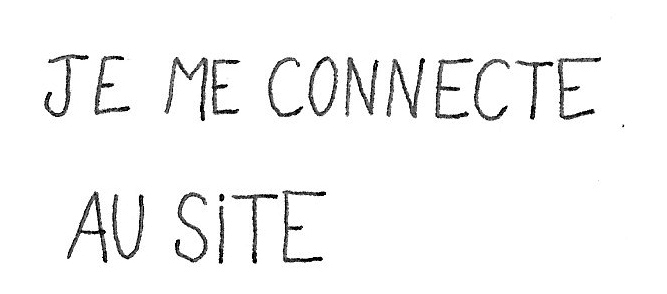 JE ME CONNECTE
AU SiTE